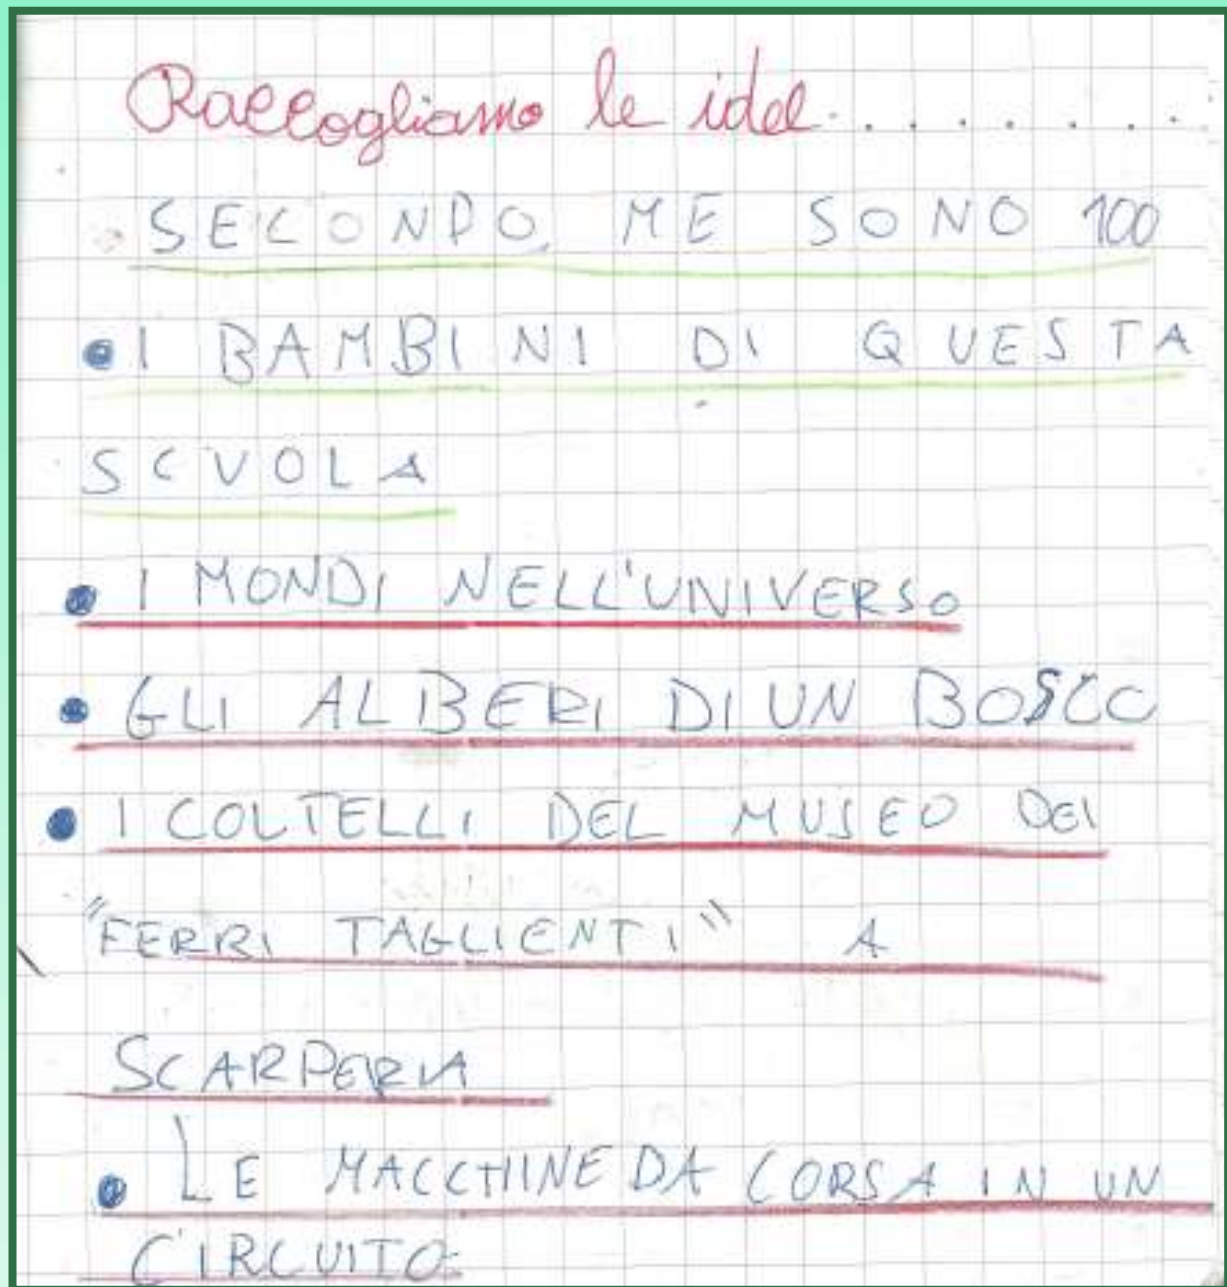 Raccogliamo le idee........
SECONDO ME SONO 100
• I BAMBINI DI QUESTA
SCUOLA
• I MONDI NELL'UNIVERSO
• GLI ALBERI DI UN BOSCO
• I COLTELLI DEL MUSEO DEI
"FERRI TAGLIENTI" A
SCARPERIA
• LE MACCHINE DA CORSA IN UN
CIRCUITO